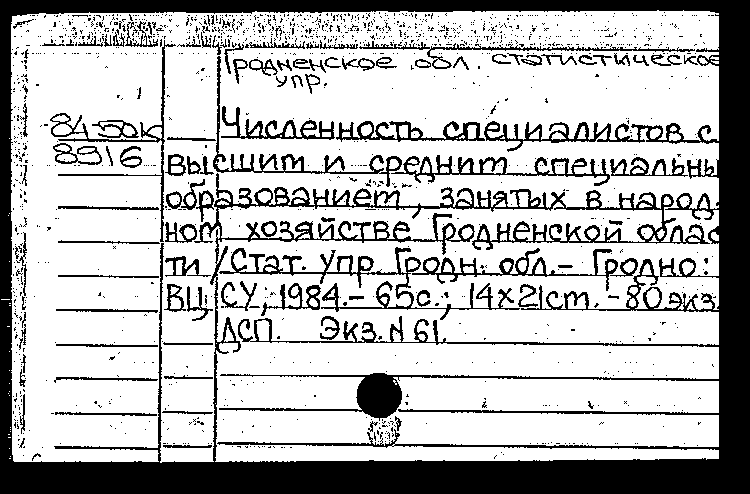 Гродненское обл. статистическое
упр.
84-50к
8916
Численность специалистов с
высшим и средним специальны
образованием, занятых в народ-
ном хозяйстве Гродненской облас
ти / Стат. упр. Гродн. обл. - Гродно:
ВЦ СУ, 1984. - 65с.; 14x21cm. - 80 экз.
ДСП. Экз. N 61.